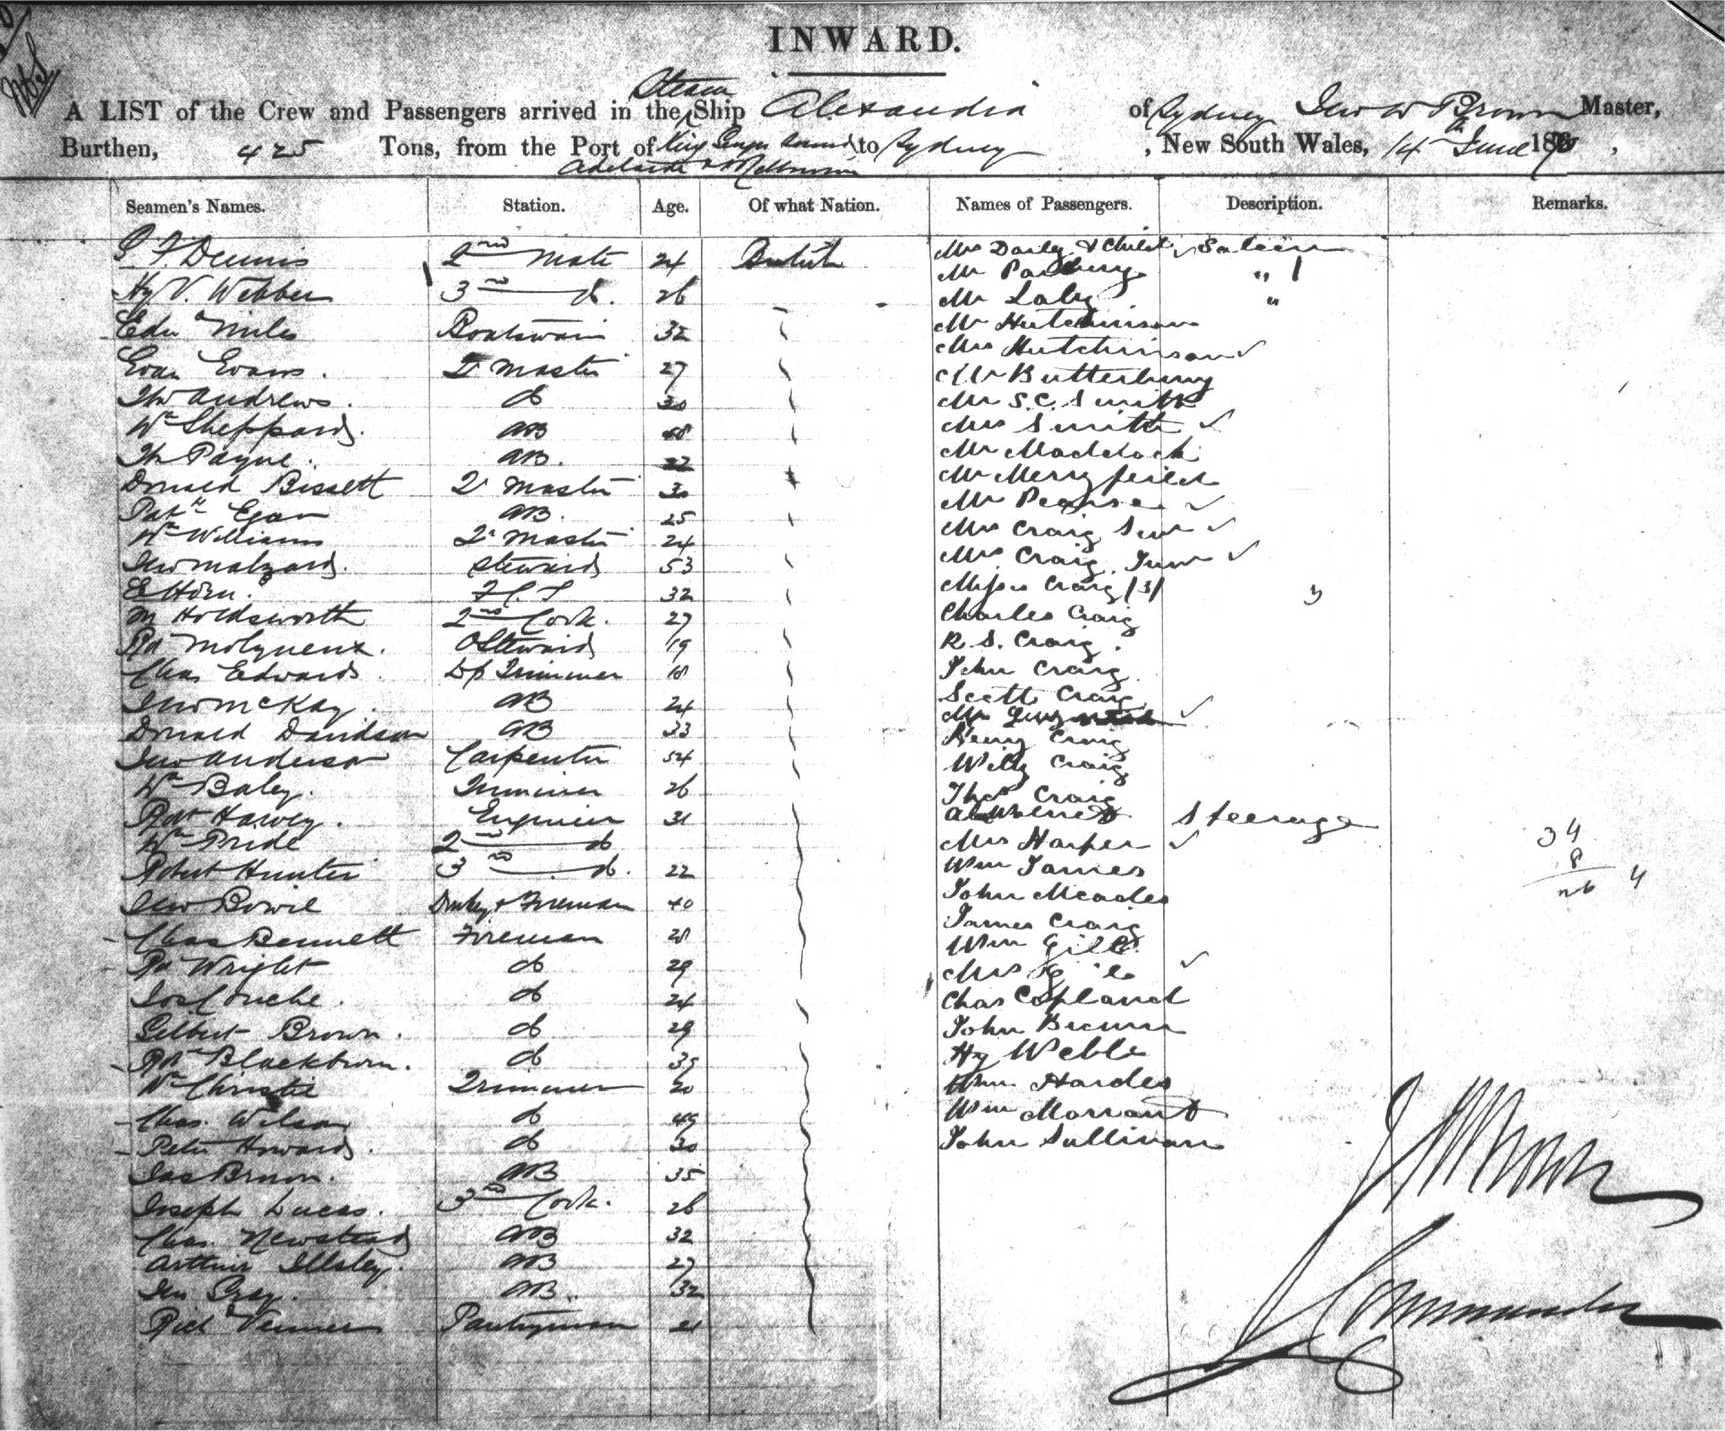 INWARD.
A LIST of the Crew and Passengers arrived in the Steam Ship Alexandria of Sydney Jno W Brown Master,
Burthen, 425 Tons, from the Port of King Georges Sound to Sydney, New South Wales, 14th June 187 ,
Adelaide & Melbourne
Seamen's Names. Station. Age. Of what Nation. Names of Passengers. Description. Remarks.
Dennis 2nd Mate 24 British Mrs Daily & Child Saloon
Hy V. Webber 3rd do. 26 Mr "
Edwd Miles Boatswain 32 Mr "
Evan Evans. Qr Master 27 Mr Hutchinson
Thos Andrews. do 30 Mrs Hutchinson
Wm Sheppard. AB Mr Butterbury
Th Payne. AB. 22 Mr S. C. Smith
Donald Bissett Qr Master 30 Mrs Smith
Patk Egan AB. 25 Mr Maddock
Wm Williams Qr Master 24 Mr Merryfield
Jno Malzard. Steward 53 Mr Pearse
E Horn. 32 Mrs Craig Senr
M Holdsworth 2nd Cook. 27 Mrs Craig Junr
Rd Molyneux. Steward 19 Misses Craig (3) 3
Chas Edwards Trimmer 18 Charles Craig
Jno McKay. AB 24 R. S. Craig.
Donald Davidson AB 33 John Craig
Jno Anderson Carpenter 54 Scott Craig
Wm Baley. Trimmer 26 Mrs
Robt Harvey. Engineer 31 Henry Craig
Wm Pride 2nd do Willy Craig
Robert Hunter 3rd do. 22 Thos Craig
Jno Bowie Donkey & Fireman 40 Steerage
Chas Bennett Fireman 28 Mrs Harper 34
Rd Wright do 29 Wm James 8
Jos Couche. do 24 John Meades 26 4
Gilbert Brown. do 29 James Craig
Robt Blackburn. do 35 Wm Gill
Wm Christie Trimmer 20 Mrs Gill
Chas. Wilson do 49 Chas Copland
Peter Howard. do 30 John Brown
Jas Brown. AB 35 Hy Webb
Joseph Lucas. 3rd Cook. 26 Wm Hardes
Chas. Newstead AB 32 Wm Morrant
Arthur Illsley. AB 27 John Sullivan
Jno Gray. AB. 32
Richd Venner Pantryman 21
J W Brown
Commander